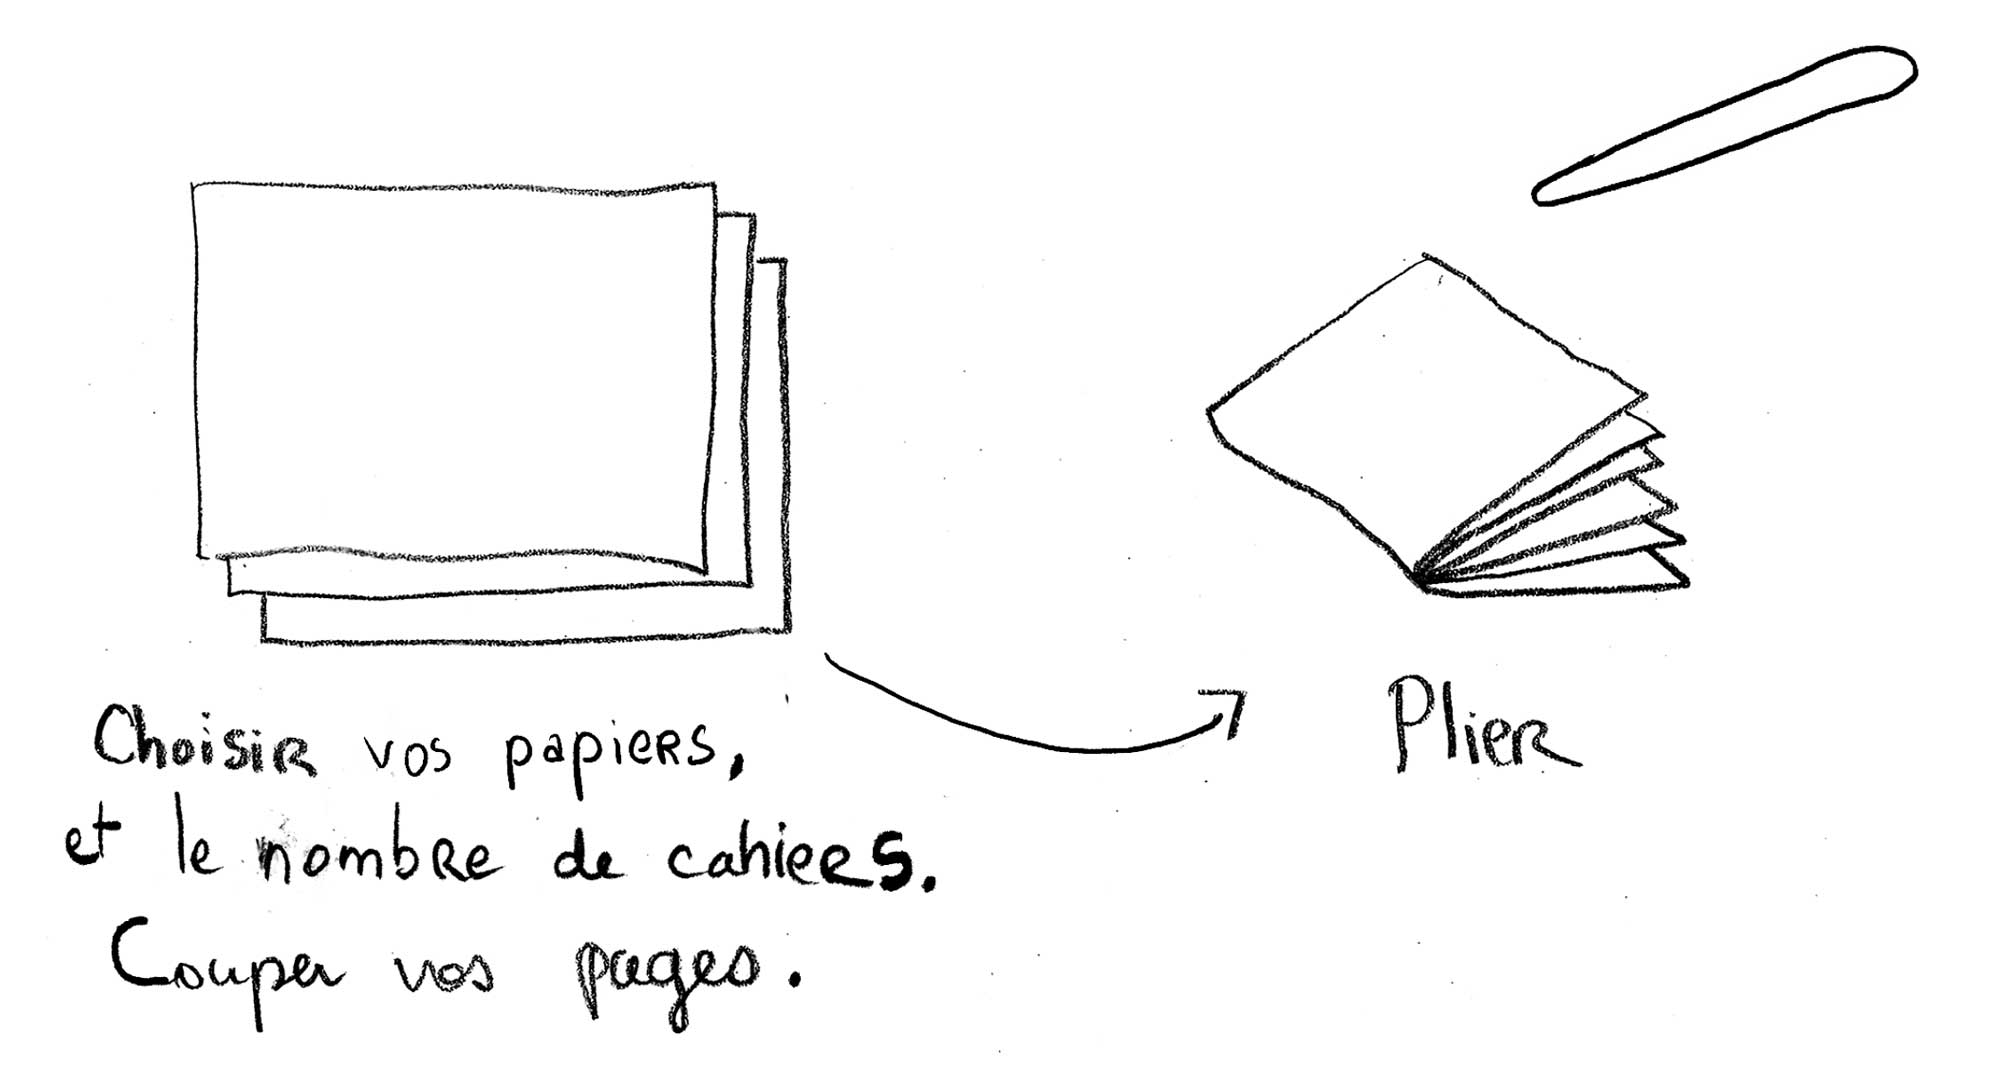 Choisir vos papiers,
et le nombre de cahiers.
Couper vos pages.
Plier